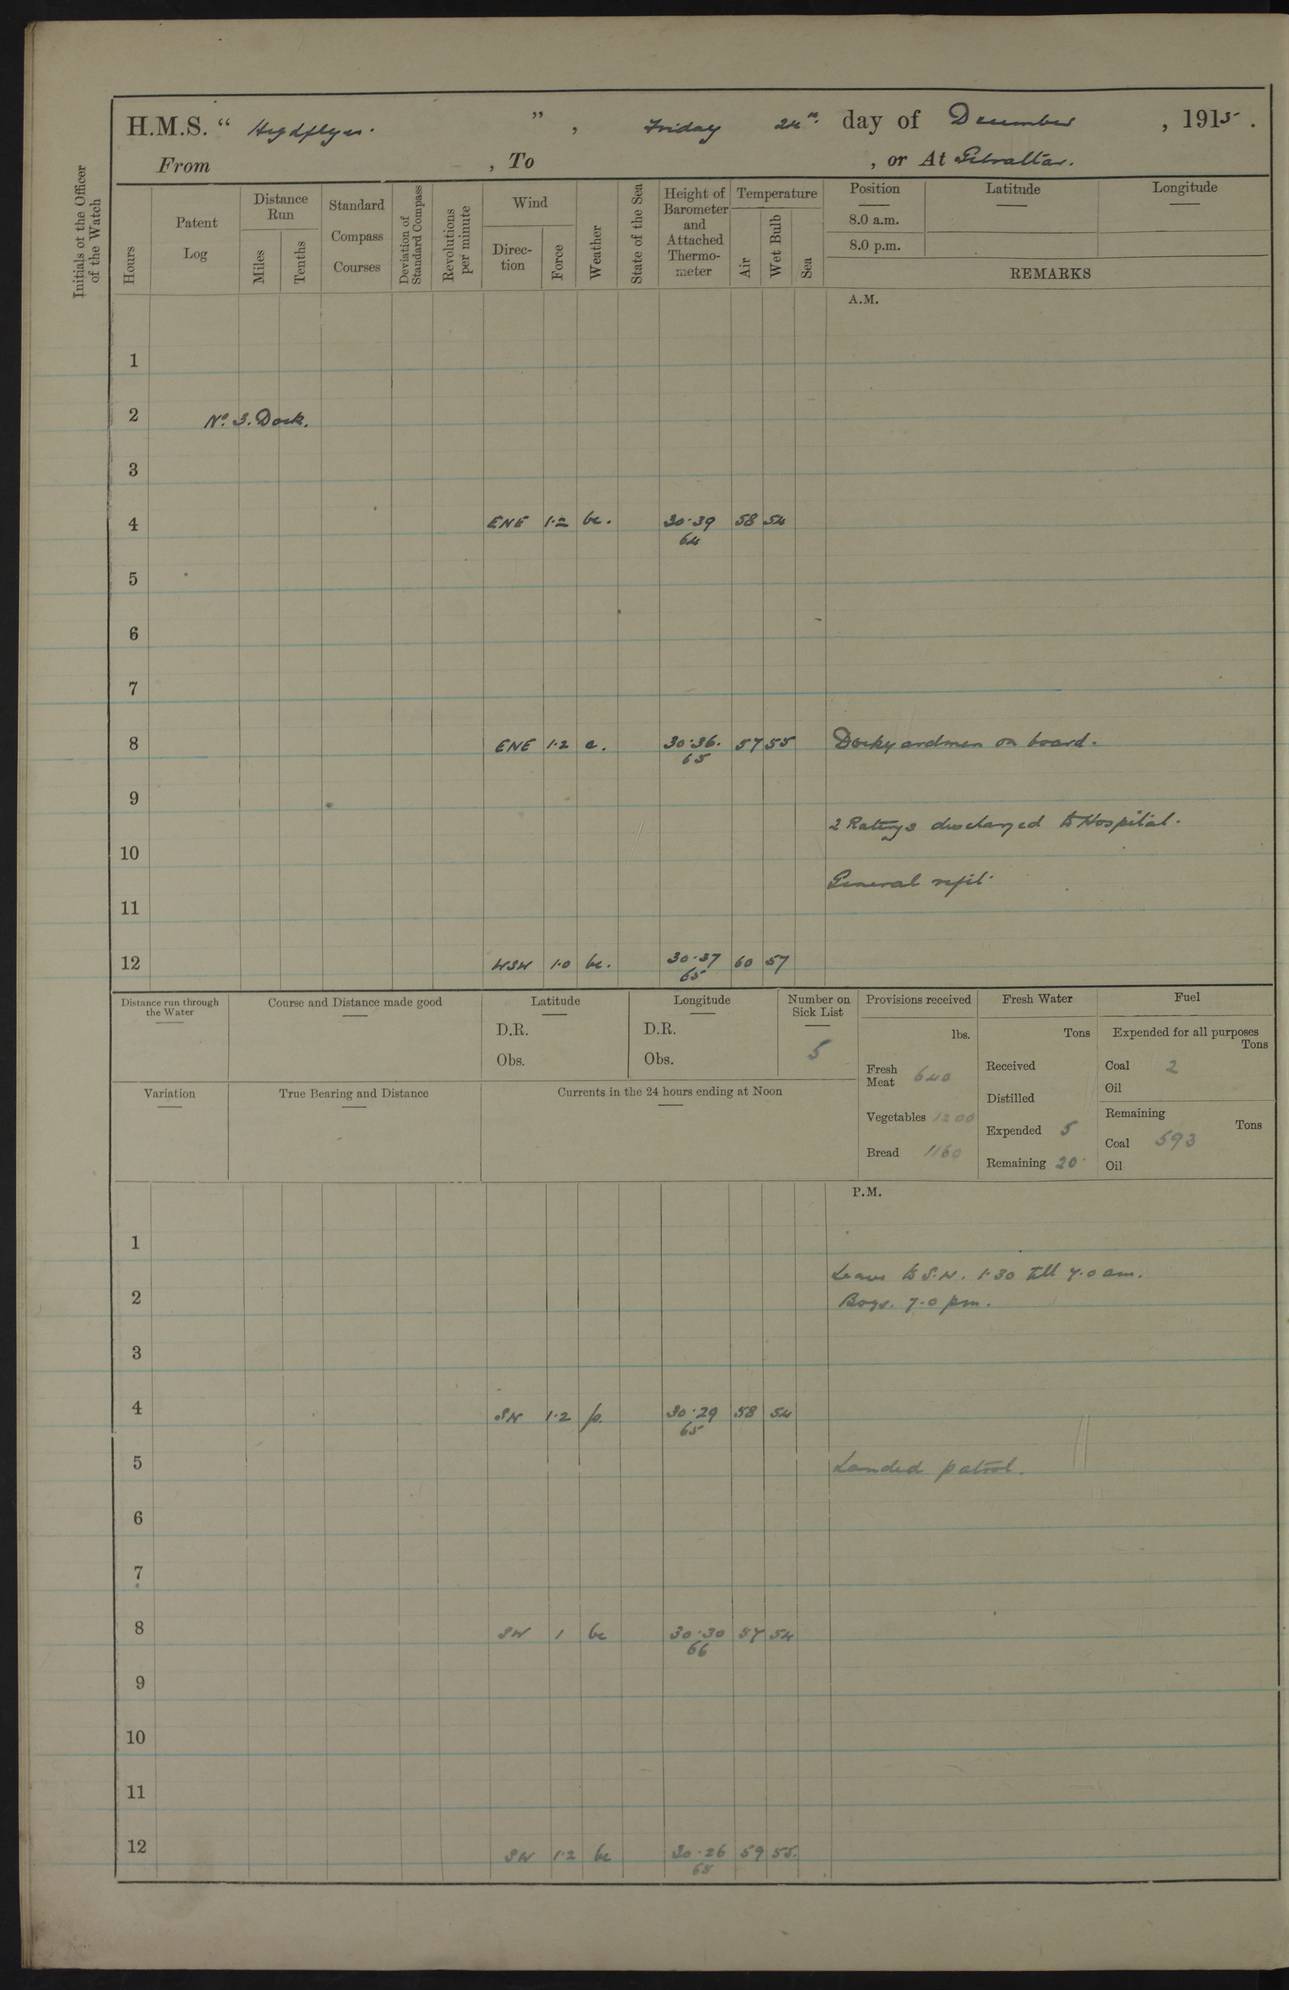 H.M.S. “ Highflyer. ” , Friday 24th day of December , 1915 .
From , To , or At Gibraltar.
Initials of the Officer of the Watch
Hours
Patent Log
Distance Run
Miles
Tenths
Standard Compass Courses
Deviation of Standard Compass
Revolutions per minute
Wind
Direc-tion
Force
Weather
State of the Sea
Height of Barometer and Attached Thermo-meter
Temperature
Air
Wet Bulb
Sea
Position Latitude Longitude
8.0 a.m.
8.0 p.m.
REMARKS
A.M.
1
2 No. 3. Dock.
3
4 ENE 1·2 bc. 30·39 58 54
64
5
6
7
8 ENE 1·2 c. 30·36. 57 55 Dockyardmen on board.
65
9
2 Ratings discharged to Hospital.
10
General refit.
11
12 WSW 1·0 bc. 30·37 60 57
65
Distance run through the Water
Course and Distance made good
Latitude
D.R.
Obs.
Longitude
D.R.
Obs.
Number on Sick List
5
Provisions received
lbs.
Fresh Meat 640
Vegetables 1200
Bread 1160
Fresh Water
Tons
Received
Distilled
Expended 5
Remaining 20
Fuel
Expended for all purposes
Tons
Coal 2
Oil
Remaining
Tons
Coal 593
Oil
Variation
True Bearing and Distance
Currents in the 24 hours ending at Noon
P.M.
1
Leave to S.W. 1·30 till 7·0 am.
2 Boys. 7·0 pm.
3
4 SW 1·2 p. 30·29 58 54
65
5 Landed patrol.
6
7
8 SW 1 bc 30·30 57 54
66
9
10
11
12 SW 1·2 bc 30·26 59 55.
65